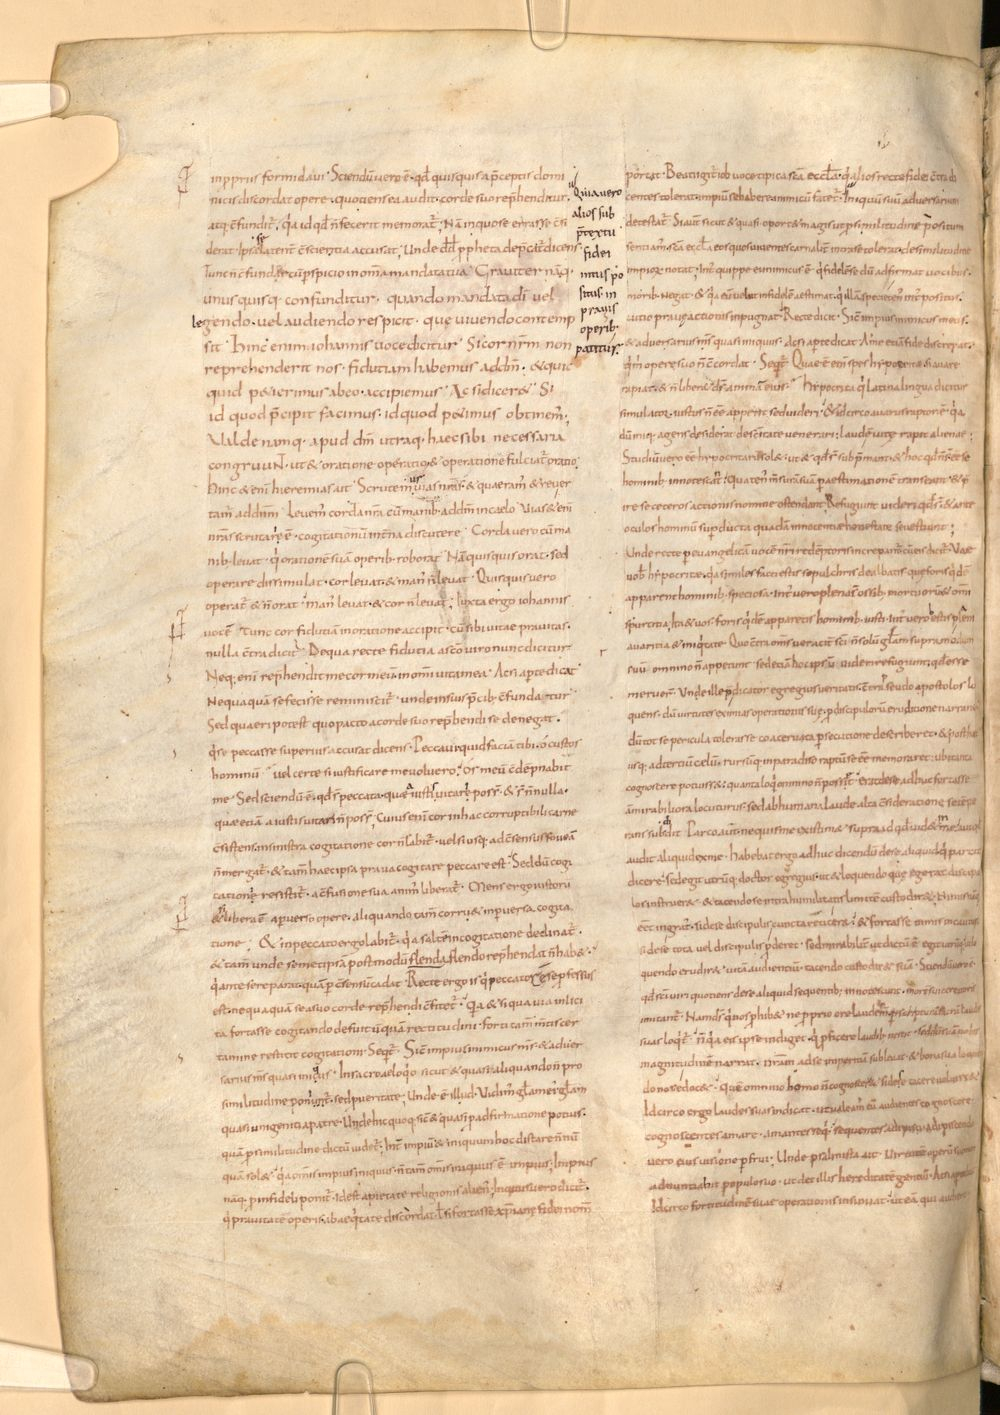 in prius formidavi. Sciendu vero ē. qd quisquis a pceptis domi
nicis discordat opere. quotiens ea audit. corde suo rephenditur.
atq; cfundit. qa id qd n fecerit memorat. Na in quo se errasse csi
derat. ipsa latent cscientia accusat. Unde dd ppheta depcat dicens
Tunc n cfundar cu pspicio in oma mandata tua. Graviter naq.
unusquisq; confunditur. quando mandata di vel
legendo. vel audiendo respicit. que vivendo contemp
sit. Hinc enim iohannis voce dicitur. Si cor nrm non
reprehenderit nos. fiduciam habemus ad dm. & quic
quid petierimus ab eo. accipiemus. Ac si diceret. Si
id quod pcipit facimus. id quod petimus obtinem.
Valde namq. apud dm utraq. haec sibi necessaria
congruunt. ut & oratione operatio. & operatione fulciat oratio.
Hinc & eni hieremias ait. Scrutem vias nras. & quaeram & rever
tam ad dnm. Levem corda nra cu manib. ad dnm in caelo. Vias & eni
nras scrutari ē. cogitationu interna discutere. Corda vero cu ma
nib. levat. q oratione sua operib. roborat. Na quisquis orat. sed
operare dissimulat. cor levat. & man n levat. Quisquis vero
operat & n orat. man levat. & cor n levat. Iuxta ergo iohannis
voce. Tunc cor fiducia in oratione accipit. cu sibi vitae pravitas.
nulla ctradicit. De qua recte fiducia a sco viro nunc dicitur
Neq. eni rephendit me cor meu. in omi vita mea. Ac si apte dicat
Nequaqua se fecisse reminiscit. unde in suis pcib. cfundatur
Sed quaeri potest quo pacto a corde suo rephendi se denegat.
q se peccasse superius accusat dicens. Peccavi quid facia tibi o custos
hominu. vel certe si iustificare me voluero. os meu cdepnabit
me. Sed sciendu ē. qd st peccata. que a iustis vitari poss. & st nnulla.
quae etia a iustis vitari n poss. Cuius eni cor in hac corruptibili carne
csistens. in sinistra cogitatione cor n labit. vel si usq. ad csensus fovea
n mergat. & tam haec ipsa prava cogitare peccare est. Sed du cogi
tationi resistit. a cfusione sua anim liberat. Mens ergo iustoru
& si libera ē a perverso opere. aliquando tam corruit in perversa cogita
tione. & in peccato ergo labit. qa saltem in cogitatione declinat.
& tam unde semetipsa postmodu flenda flendo rephendat n habet.
q ante se reparat. qua p csensu cadat. Recte ergo is q peccatore se pfessus
est. nequaqua se a suo corde rephendi cfitet. Qa & si qua via inlici
ta fortasse cogitando defuit unqua rectitudini. forti tam mtis cer
tamine restitit cogitationi. Seqt. Sic impius inimicus ms. & adver
sarius ms quasi iniquus. In sacro aeloqo sicut & quasi aliquando n pro
similitudine ponunt. sed p veritate. Unde ē illud. Vidim glam ei gla
quasi unigeniti a patre. Unde hic quoq. sic & quasi p adfirmatione potius.
qua p similitudine dictu videt. Int impiu & iniquu hoc distare nnu
qua solet. qa omis impius iniquus. n tam omis iniquus ē impius. Impius
naq. p infideli ponit. id est a pietate religionis alien. Iniquus vero dicit.
q pravitate operis. ab aeqtate discordat. l si fortasse xpiane fidei nom
Qui a vero
alios sub
ptextu
fidei
intus po
situs. in
pravis
operib.
patitur.
portat. Beati git iob voce tipica sca eccla. q alios recte fidei ctra di
centes tolerat. impiu se habere inimicu fatet. Iniquu suu adversariu
detestat. Si aut sicut & quasi. oportet magis ut p similitudine positum
sentiam. sca eccla eos quos viventes carnalit intra se tolerat. de similitudine
impioru notat. Int quippe ei inimicus ē. q fidele se du adfirmat vocibus.
morib. negat. & qa eu velut infidele aestimat. q illa specie teni int positus.
Recte dicit. Sic impius inimicus meus.
& adversarius ms quasi iniquus. Ac si apte dicat. A me etia fide discrepat.
qm opere suo n ccordat. Seqt. Quae ē eni spes hypocrite. si avare
rapiat. & n liberet ds anima eius. Hypocrita q latina lingua dicitur
simulator. iustus n ee appetit sed videri. & idcirco avarus raptor ē. qa.
du iniq. agens desiderat de scitate venerari. laude vite rapit alienae.
Studiu vero ee hypocritaru solet. ut & qd st subpmant. & hoc qd n st ee se
hominib. innotescat.
ire se ceteros actionis nomine ostendant. Refugiunt videri qd st. & ante
oculos hominu supducta quada innocentiae honestate se vestiunt.
Unde recte p evangelica voce nri redeptoris increpant. cu eis dicit. Vae
vob hypocrite. qa similes facti estis sepulchris dealbatis. que foris qde
apparent hominib. speciosa. int vero plena st ossib. mortuoru & omi
spurcitia. Ita & vos foris qde apparetis hominib. iusti. int vero estis pleni
avaritia & iniqtate. Quo ctra oms veracit sci. n solu gla supra modum
suu. omnino n appetunt. sed etia hoc ipsu videri refugiunt. qd esse
meruer. Unde ille pdicator egregius veritatis. ctra pseudo apostolos lo
quens. du virtutes eximias operationis sue. p discipuloru eruditione narraret.
du tot se pericula tolerasse. coacervata psecutione describeret. & post haec
usq. ad tertiu celu. rursuq. in paradiso raptu se ee memoraret. ubi tanta
cognoscere potuisset. quanta loqi omnino n posset. erat de se adhuc fortasse
amirabiliora locuturus. sed ab humana laude alta csideratione se tepe
rans subdit. Parco aut. ne quis me existimet supra id qd videt me. aut
audit aliquid ex me. Habebat ergo adhuc dicendu de se aliquid. q parcit
dicere. sed egit utruq. doctor egregius. ut & loquendo que egerat discipu
los instrueret. & tacendo se intra humilitatis limite custodiret. Nimis nuq
eet ingrat. si de se discipulis cuncta reticeret. & fortasse nimis incautus.
si de se tota vel discipulis pderet. sed mirabilit ut dictu ē. egit utruq. lo
quendo erudiret vita audientiu. tacendo custodiret & sua. Sciendu vero ē.
qd sci viri quotiens de se aliquid sequentib. innotescunt. more sui creatoris
imitant. Nam ds q nos phibet ne pprio ore laudem
suas loqt. n qa eis ipse indiget. q pficere laudib. nescit.
magnitudine narrat. nram ad se imperitia sublevat. & bona sua loquen
do nos edocet. Que omnino homo n cognosceret. si de se tacere voluisset.
Idcirco ergo laudes suas indicat. ut valeam eu audientes cognoscere.
cognoscentes amare. amantes seq. sequentes adipisci. adipiscendo
vero eius visione pfrui. Unde psalmista ait. Virtute operu suoru
adnuntiabit populo suo. ut det illis hereditate gentiu. Ac si apte
Idcirco fortitudine suae operationis insinuat. ut ea qui audierit